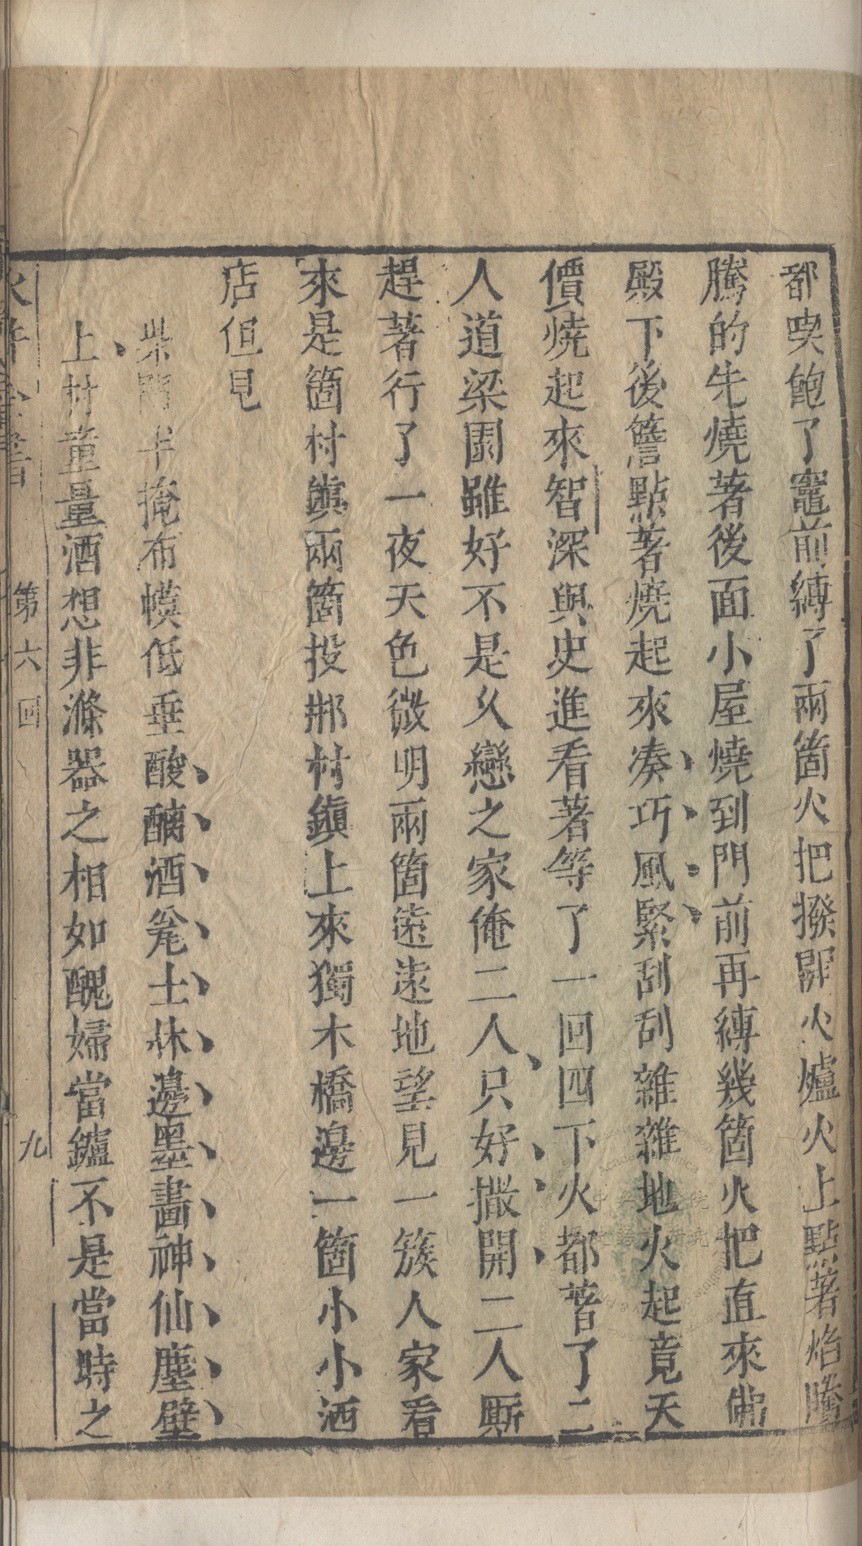 都喫飽了竈前縛了兩箇火把撥開火爐火上點著焰騰
騰的先燒著後面小屋燒到門前再縛幾箇火把直來佛
殿下後簷點著燒起來凑巧風緊刮刮雜雜地火起竟天
價燒起來智深與史進看著等了一回四下火都著了二
人道梁園雖好不是久戀之家俺二人只好撒開二人厮
趕著行了一夜天色微明兩箇遠遠地望見一簇人家看
來是箇村鎮兩箇投那村鎮上來獨木橋邊一箇小小酒
店但見
柴門半掩布幙低垂酸醨酒瓮土牀邊墨畫神仙塵壁
上村童量酒想非滌器之相如醜婦當鑪不是當時之
水滸全書 第六回 九